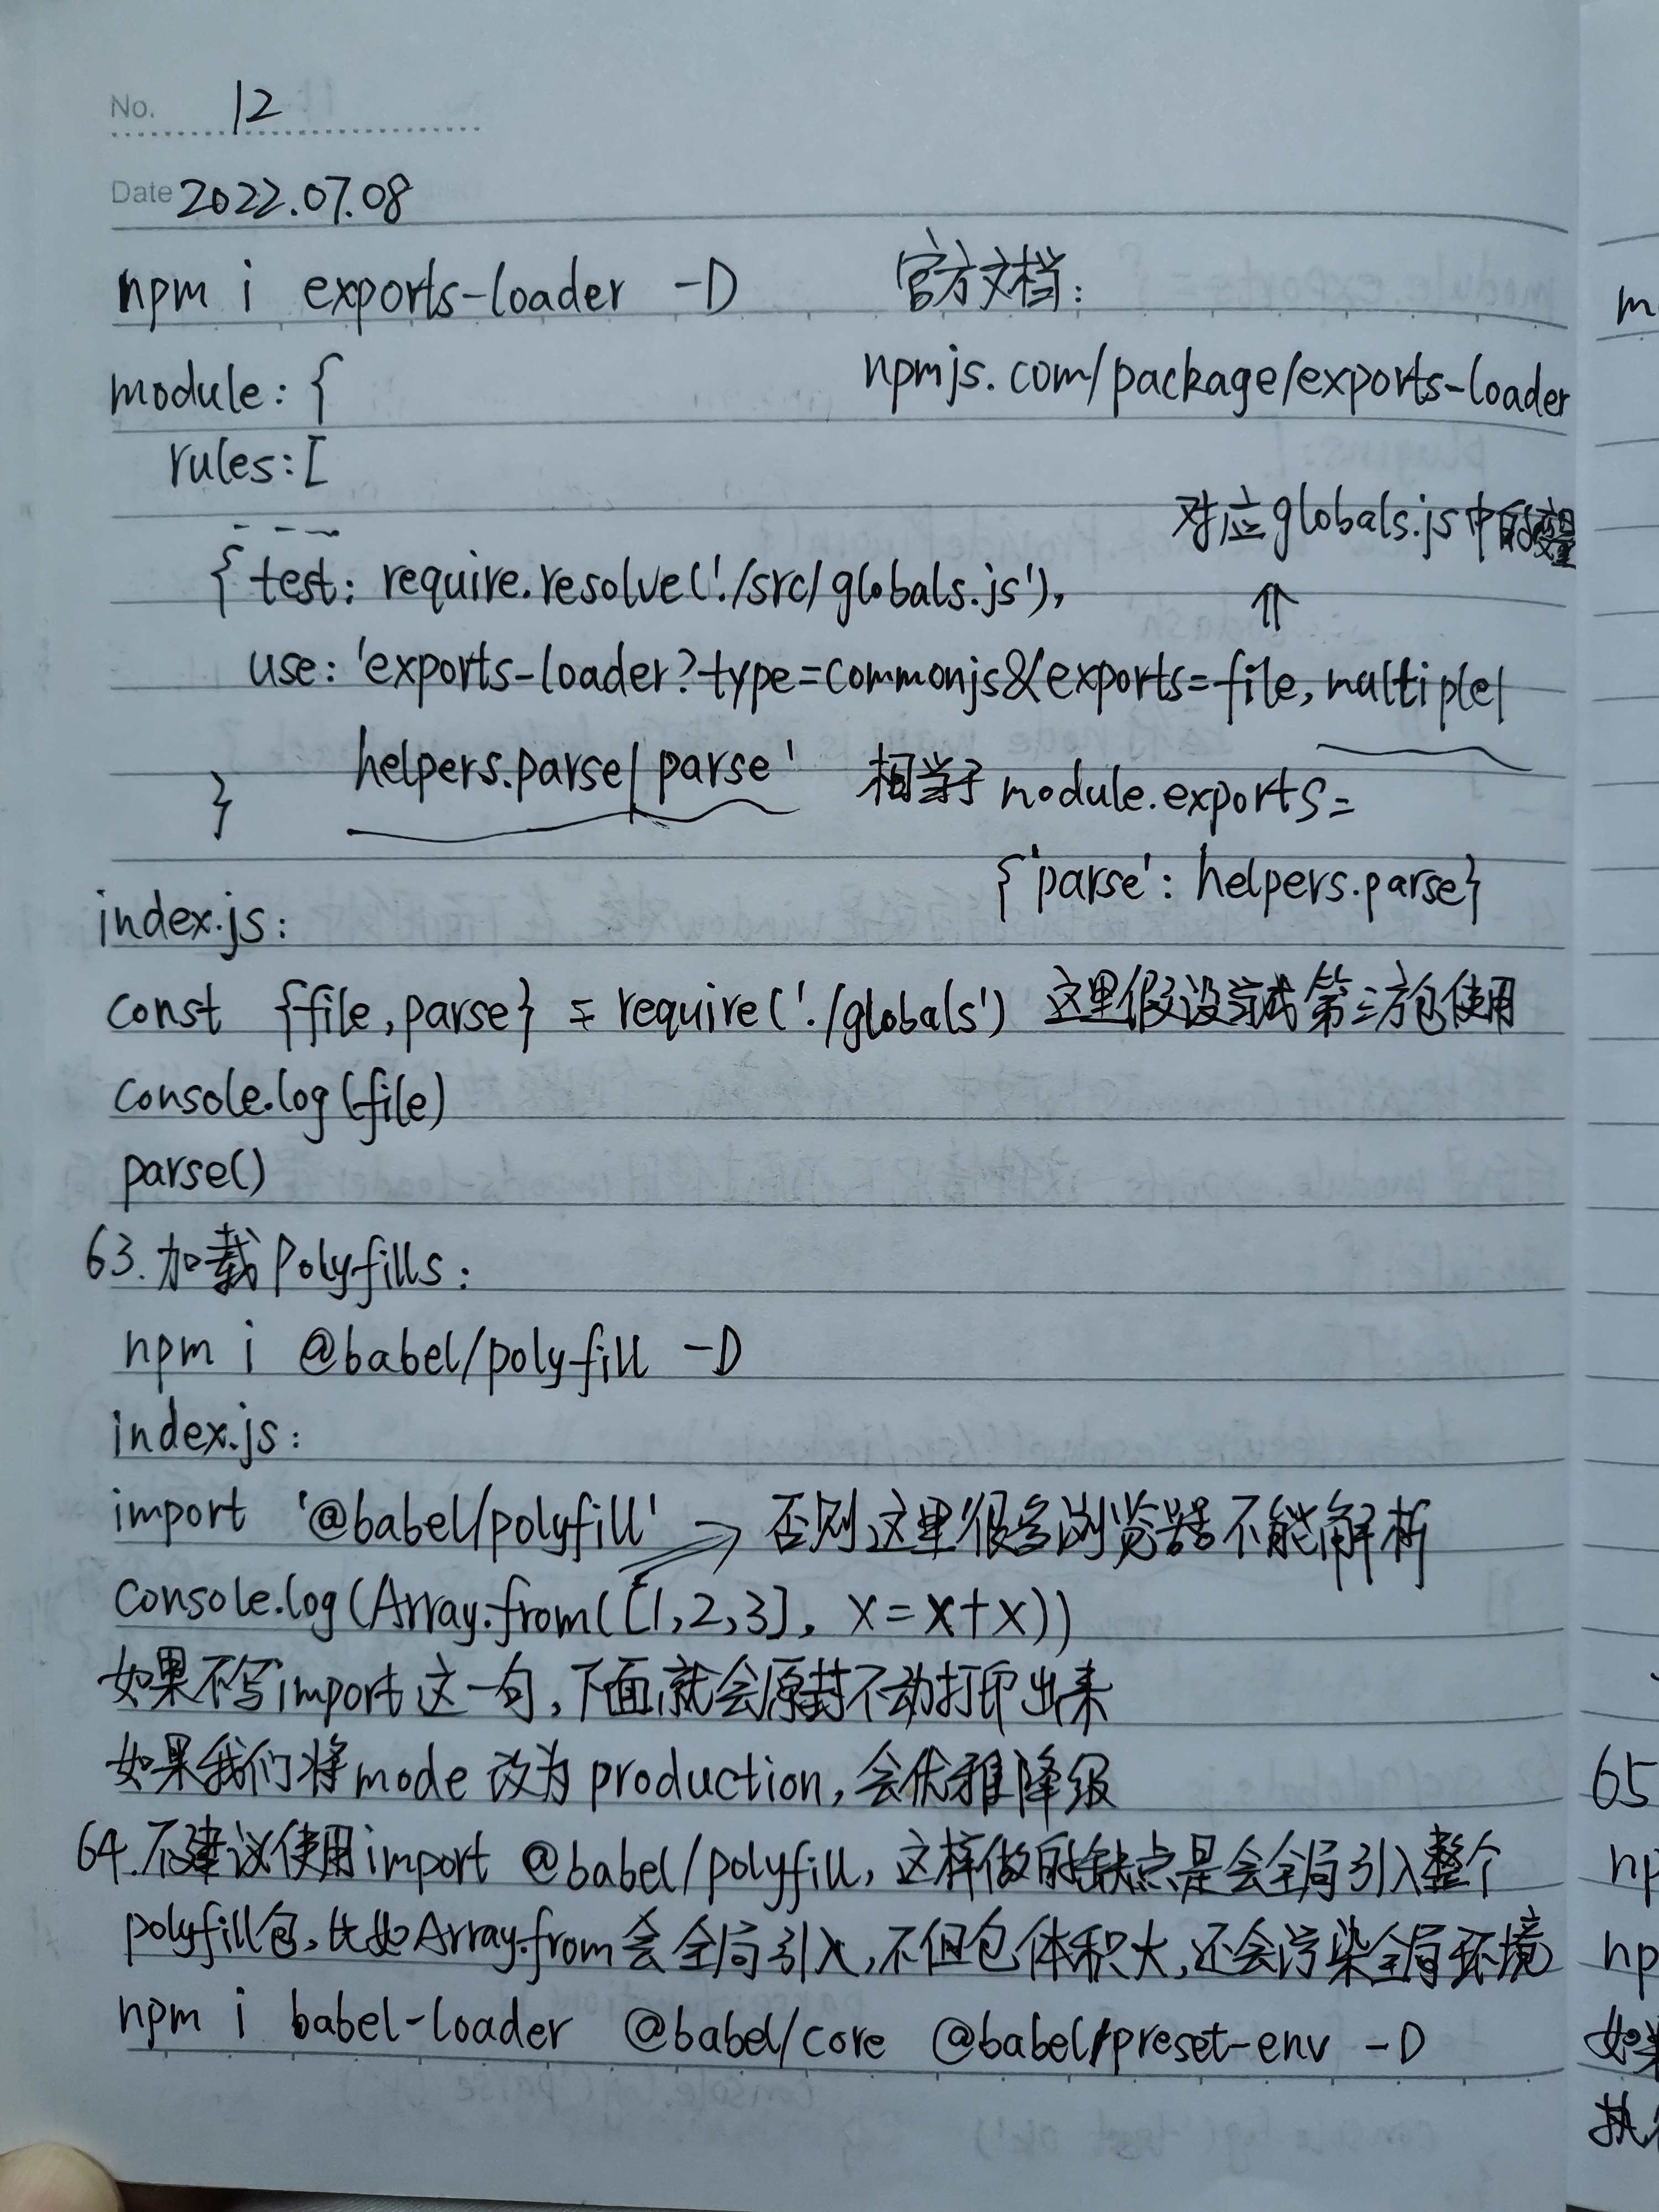 No. 12
Date 2022.07.08
npm i exports-loader -D 官方文档:
module: { npmjs.com/package/exports-loader
rules: [
--- 对应globals.js中的变量
{ test: require.resolve('./src/globals.js'), ⇑
use: 'exports-loader?type=commonjs&exports=file, multiple|
helpers.parse|parse' 相当于module.exports=
} {'parse': helpers.parse}
index.js:
const {file, parse} = require('./globals') 这里假设当成第三方包使用
console.log(file)
parse()
63. 加载Polyfills:
npm i @babel/polyfill -D
index.js:
import '@babel/polyfill' → 否则这里很多浏览器不能解析
console.log(Array.from([1,2,3], x=x+x))
如果不写import这一句,下面就会原封不动打印出来
如果我们将mode改为production,会优雅降级
64. 不建议使用import @babel/polyfill, 这样做的缺点是会全局引入整个
polyfill包,比如Array.from会全局引入,不但包体积大,还会污染全局环境
npm i babel-loader @babel/core @babel/preset-env -D
m
65
np
np
如果
执行